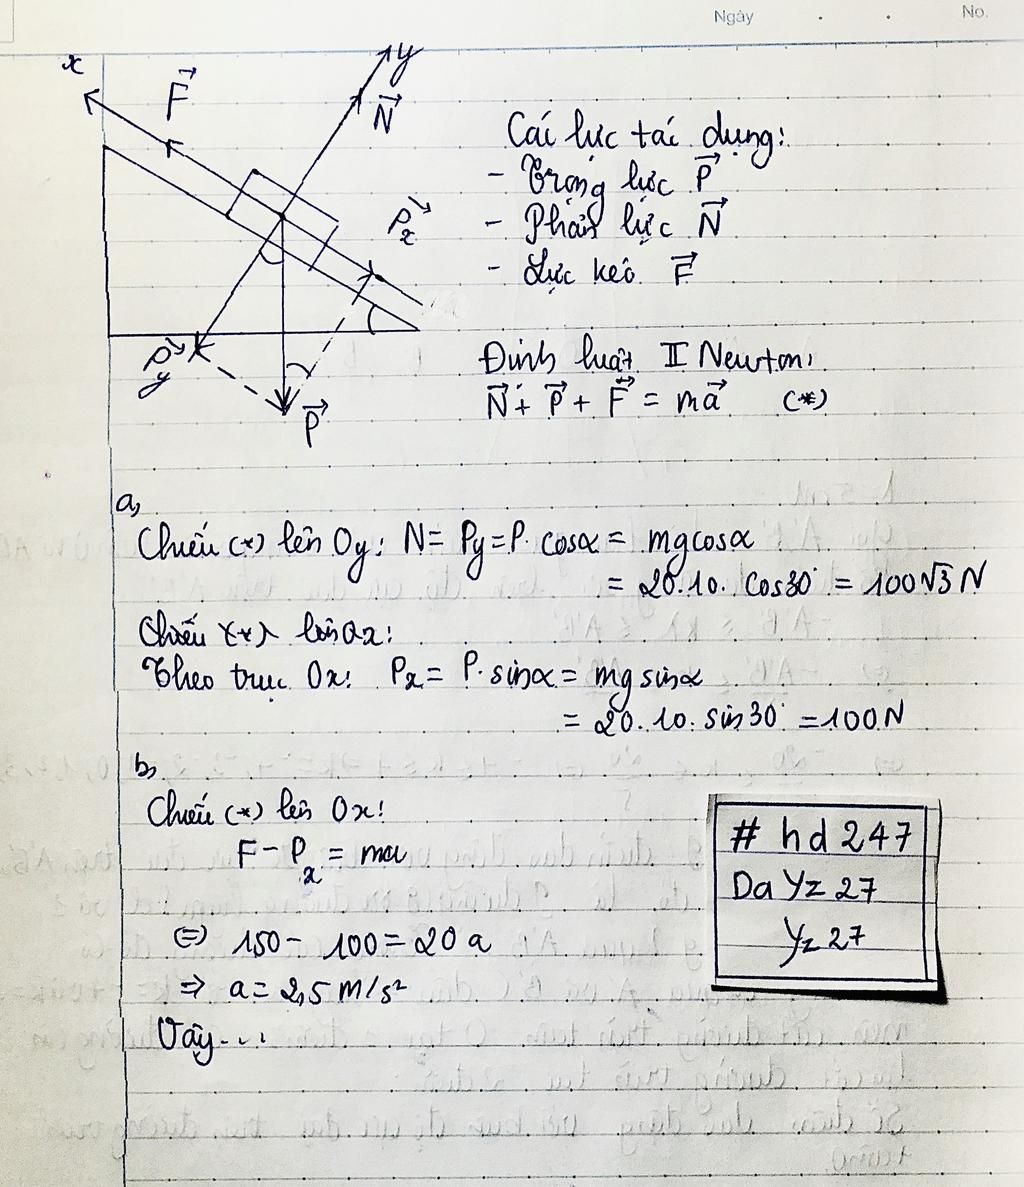 Ngày . .
No.
x
F
y
N
Px
Py
P
Các lực tác dụng:
- Trọng lực P
- Phản lực N
- Lực kéo F
Định luật II Newton:
N + P + F = ma (*)
a,
Chiếu (*) lên Oy: N = Py = P. cosα = mgcosα
= 20.10. cos30° = 100√3 N
Chiếu (*) lên Ox:
Theo trục Ox: Px = P. sinα = mg sinα
= 20.10. sin30° = 100N
b,
Chiếu (*) lên Ox:
F - Px = ma
⇔ 150 - 100 = 20a
⇒ a = 2,5 m/s²
Vậy...
# hd 247
Da Yz 27
Yz 27